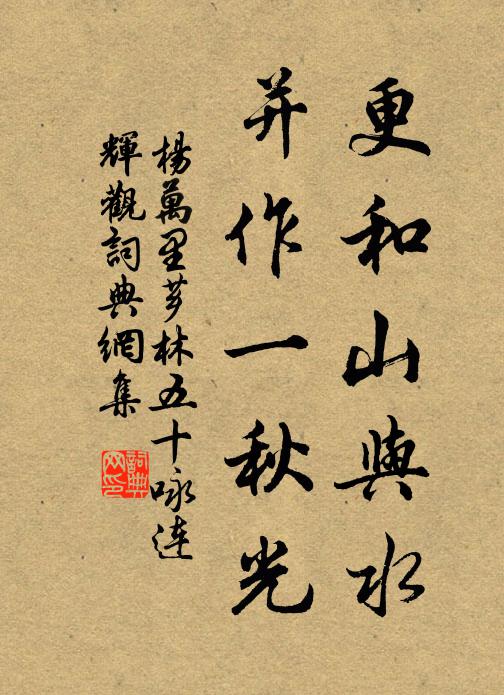 更和山與水
并作一秋光
楊萬里芗林五十咏连
輝觀詞典網集
詞典
网印